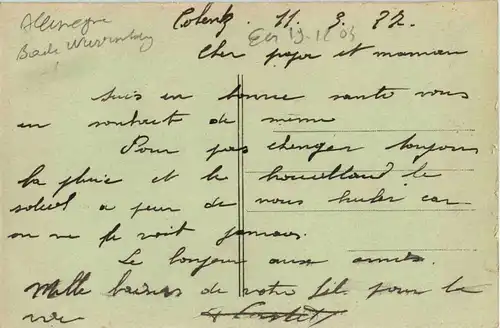 Allemagne
Bade Wurtemberg
Coblenz. 11. 3. 22.
19-12 03
Cher papa et maman
Suis en bonne sante vous
en souhait de même
Pour pas changer toujours
la pluie et le brouillard le
soleil a peur de nous bruler car
on ne le voit jamais.
Le bonjour aux amis.
Mille baisers de votre fils pour la
vie